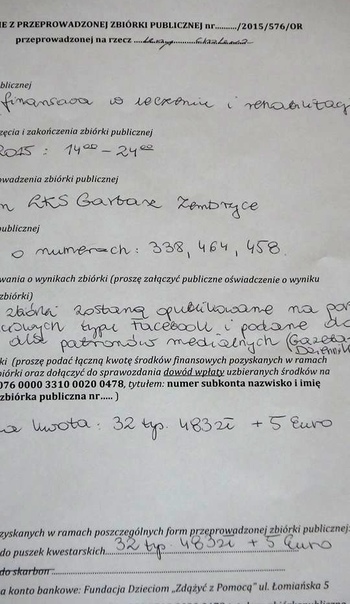 IE Z PRZEPROWADZONEJ ZBIÓRKI PUBLICZNEJ nr........../2015/576/OR
przeprowadzonej na rzecz
blicznej
finansowa w leczeniu i rehabilitacj
zęcia i zakończenia zbiórki publicznej
2015 : 14⁰⁰ – 24⁰⁰
wadzenia zbiórki publicznej
n LKS Garbarz Zembrzyce
ublicznej
o numerach: 338, 464, 458.
wania o wynikach zbiórki (proszę załączyć publiczne oświadczenie o wyniku
zbiórki)
zbiórki zostaną opublikowane na por
typu Facebook i podane do
dla patronów medialnych (Gazeta
Dziennik
ki (proszę podać łączną kwotę środków finansowych pozyskanych w ramach
biórki oraz dołączyć do sprawozdania dowód wpłaty uzbieranych środków na
076 0000 3310 0020 0478, tytułem: numer subkonta nazwisko i imię
zbiórka publiczna nr..... )
na kwota: 32 typ. 483 zł + 5 Euro
zyskanych w ramach poszczególnych form przeprowadzonej zbiórki publicznej:
do puszek kwestarskich 32 typ 483 zł + 5 Euro
do skarbon
a konto bankowe: Fundacja Dzieciom „Zdążyć z Pomocą" ul. Łomiańska 5